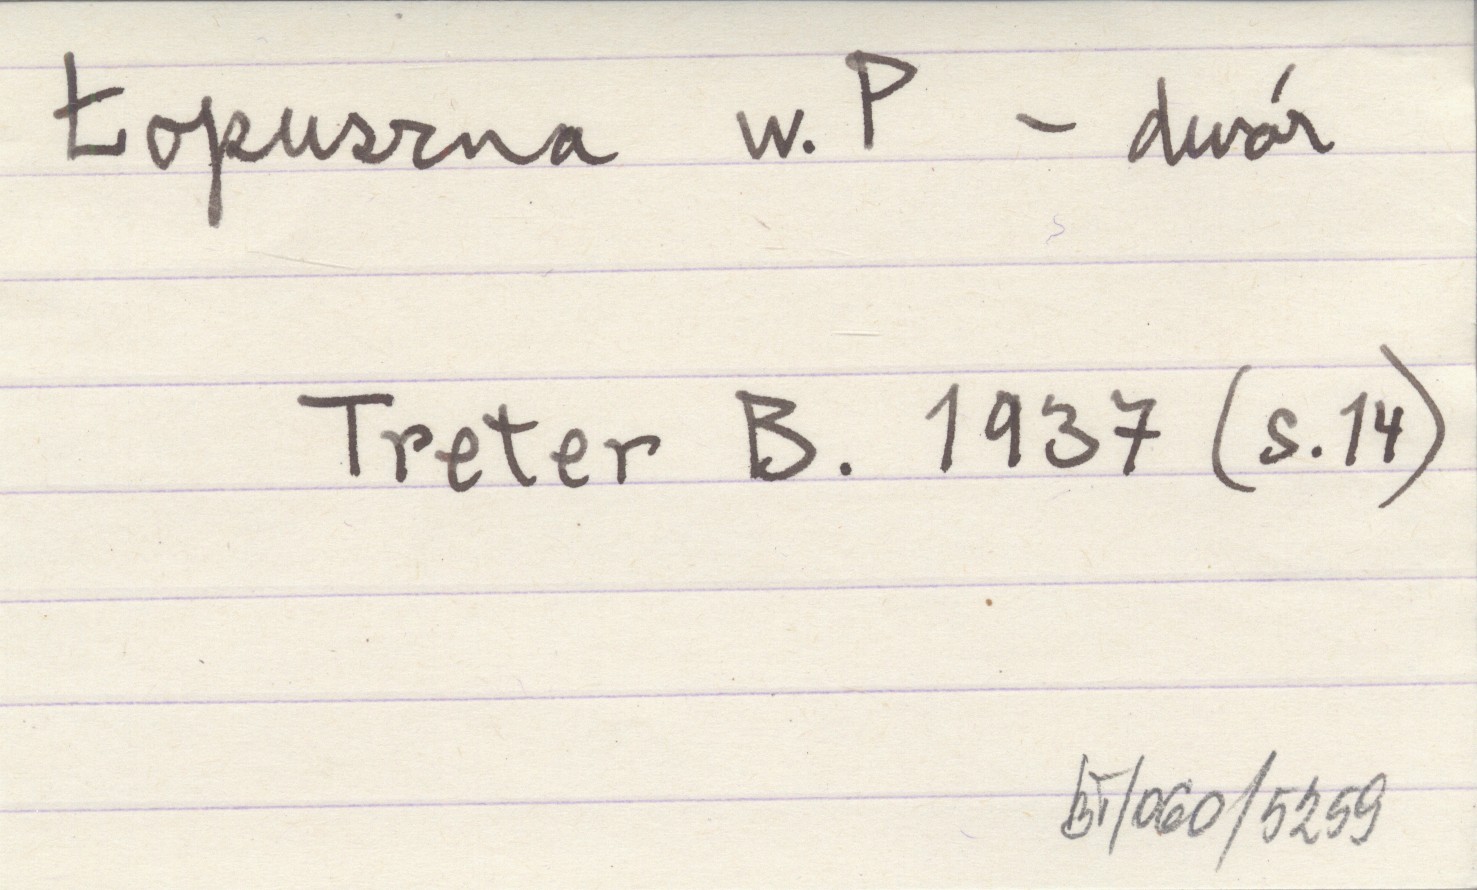 Łopuszna w. P - dwór
Treter B. 1937 (s. 14)
BT/060/5259